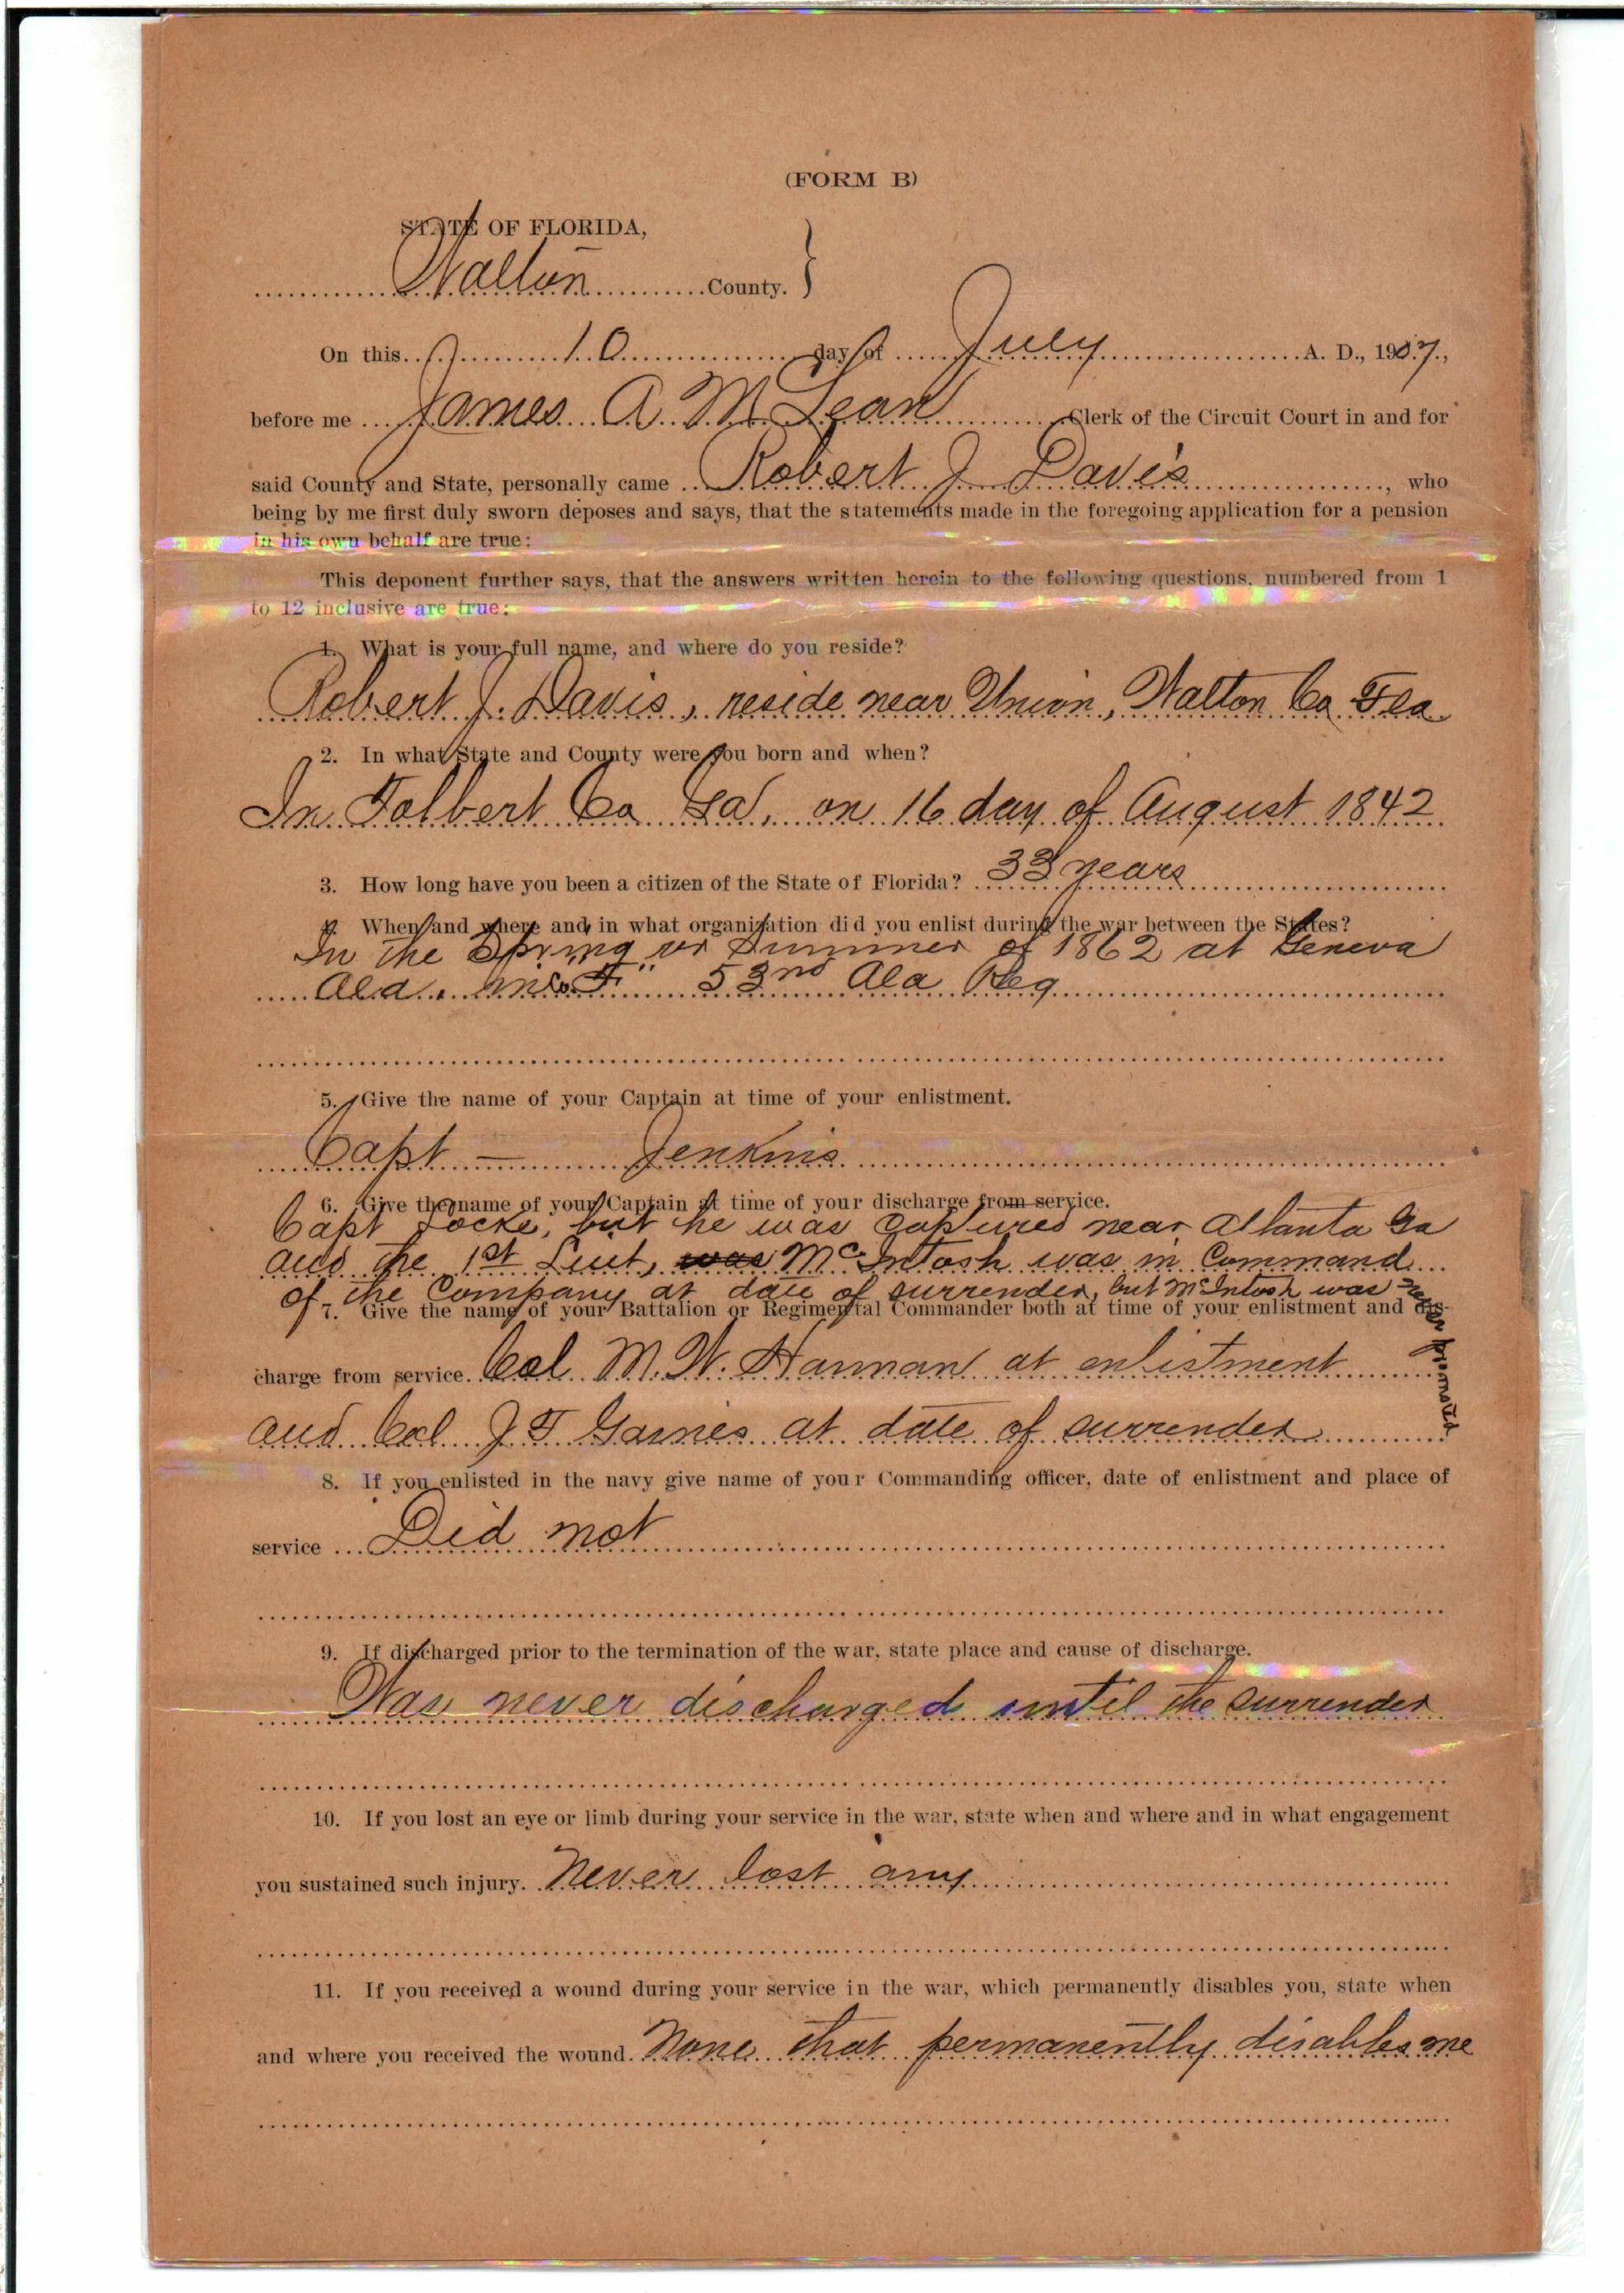 (FORM B)
STATE OF FLORIDA,
Walton County.
On this 10 day of July A. D., 1907,
before me James A. McLean Clerk of the Circuit Court in and for
said County and State, personally came Robert J. Davis, who
being by me first duly sworn deposes and says, that the statements made in the foregoing application for a pension
in his own behalf are true:
This deponent further says, that the answers written herein to the following questions, numbered from 1
to 12 inclusive are true:
1. What is your full name, and where do you reside?
Robert J. Davis, reside near Union, Walton Co Fla
2. In what State and County were you born and when?
In Tolbert Co Ga, on 16 day of August 1842
3. How long have you been a citizen of the State of Florida? 33 years
4. When and where and in what organization did you enlist during the war between the States?
In the Spring or Summer of 1862 at Geneva
Ala. in Co "F" 53rd Ala Reg
5. Give the name of your Captain at time of your enlistment.
Capt — Jenkins
6. Give the name of your Captain at time of your discharge from service.
Capt Locke, but he was captured near Atlanta Ga
and the 1st Lieut, was McIntosh was in Command
of the Company at date of surrender, but McIntosh was never promoted
7. Give the name of your Battalion or Regimental Commander both at time of your enlistment and dis-
charge from service. Col M. W. Hannan at enlistment
and Col J F Gaines at date of surrender
8. If you enlisted in the navy give name of your Commanding officer, date of enlistment and place of
service Did not
9. If discharged prior to the termination of the war, state place and cause of discharge.
Was never discharged until the surrender
10. If you lost an eye or limb during your service in the war, state when and where and in what engagement
you sustained such injury. Never lost any
11. If you received a wound during your service in the war, which permanently disables you, state when
and where you received the wound. None that permanently disables me